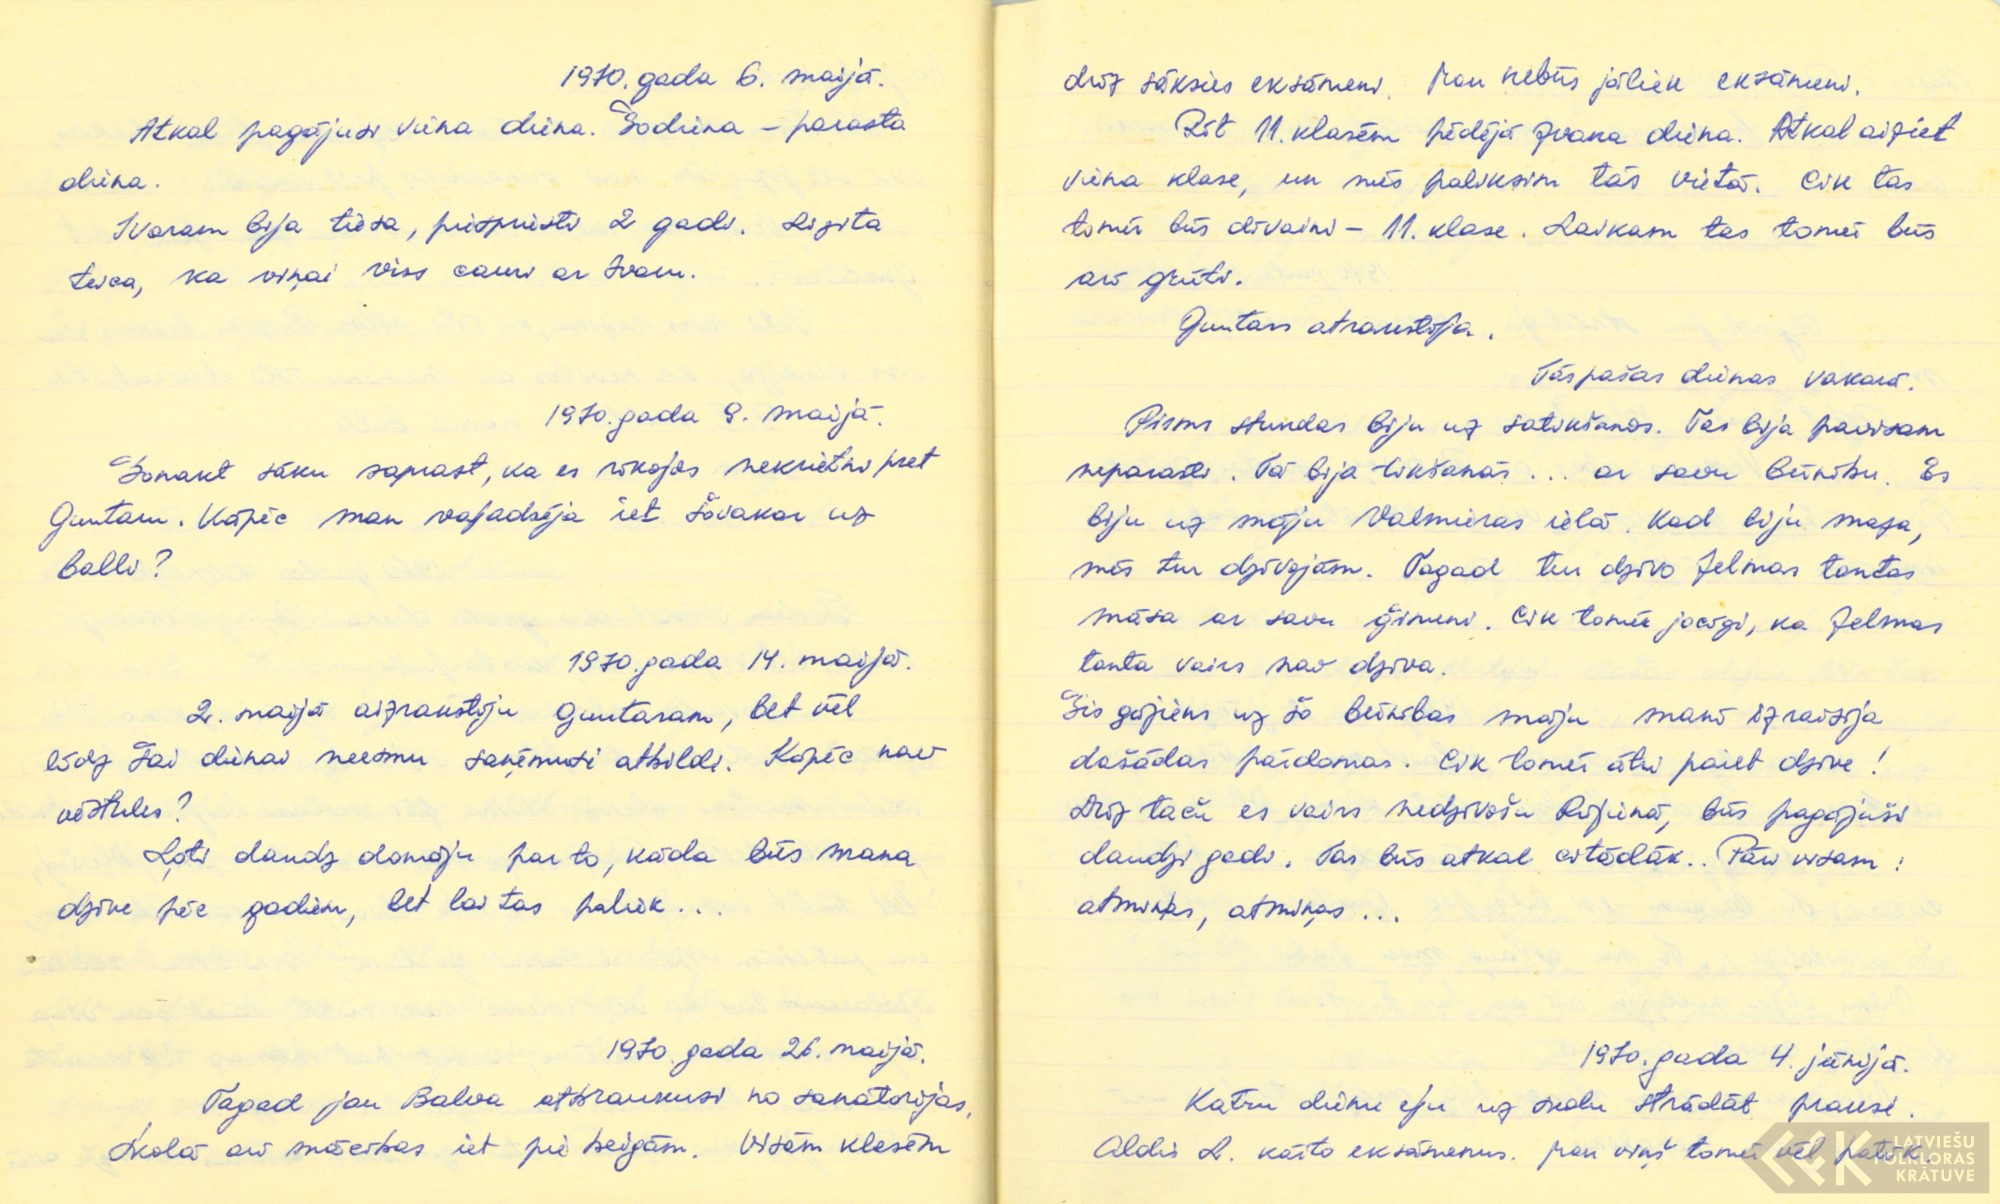 1970. gada 6. maijā.
Atkal pagājusi viena diena. Šodiena – parasta
diena.
Ivaram bija tiesa, piespriesti 2 gadi. Ligita
teica, ka viņai viss cauri ar Ivaru.
1970. gada 9. maijā.
Šonakt sāku saprast, ka es rīkojos nekrietni pret
Guntaru. Kāpēc man vajadzēja iet šovakar uz
balli?
1970. gada 14. maijā.
2. maijā aizrakstīju Guntaram, bet vēl
līdz šai dienai neesmu saņēmusi atbildi. Kāpēc nav
vēstules?
Ļoti daudz domāju par to, kāda būs mana
dzīve pēc gadiem, bet lai tas paliek...
1970. gada 26. maijā.
Tagad jau Balva atbraukusi no sanatorijas,
Skolā arī mācības iet pie beigām. Visām klasēm
drīz sāksies eksāmeni. Man nebūs jāliek eksāmeni.
Rīt 11. klasēm pēdējā zvana diena. Atkal aiziet
viena klase, un mēs paliksim tās vietā. Cik tas
tomēr būs dīvaini – 11. klase. Laikam tas tomēr būs
arī grūti.
Guntars atrakstīja.
Tāspašas dienas vakarā.
Pirms stundas biju uz satikšanos. Tas bija pavisam
neparasti. Tā bija tikšanās... ar savu bērnību. Es
biju uz māju Valmieras ielā. Kad biju maza,
mēs tur dzīvojām. Tagad tur dzīvo Zelmas tantes
māsa ar savu ģimeni. Cik tomēr jocīgi, ka Zelmas
tante vairs nav dzīva.
Šis gājiens uz šo bērnības māju manī izraisīja
dažādas pārdomas. Cik tomēr ātri paiet dzīve!
Drīz taču es vairs nedzīvošu Rūjienā, būs pagājuši
daudzi gadi. Tas būs atkal citādāk.. Pāri visam:
atmiņas, atmiņas...
1970. gada 4. jūnijā.
Katru dienu eju uz skolu strādāt praksi.
Aldis L. kārto eksāmenus. Man viņš tomēr vēl patīk.
LATVIEŠU
FOLKLORAS
KRĀTUVE